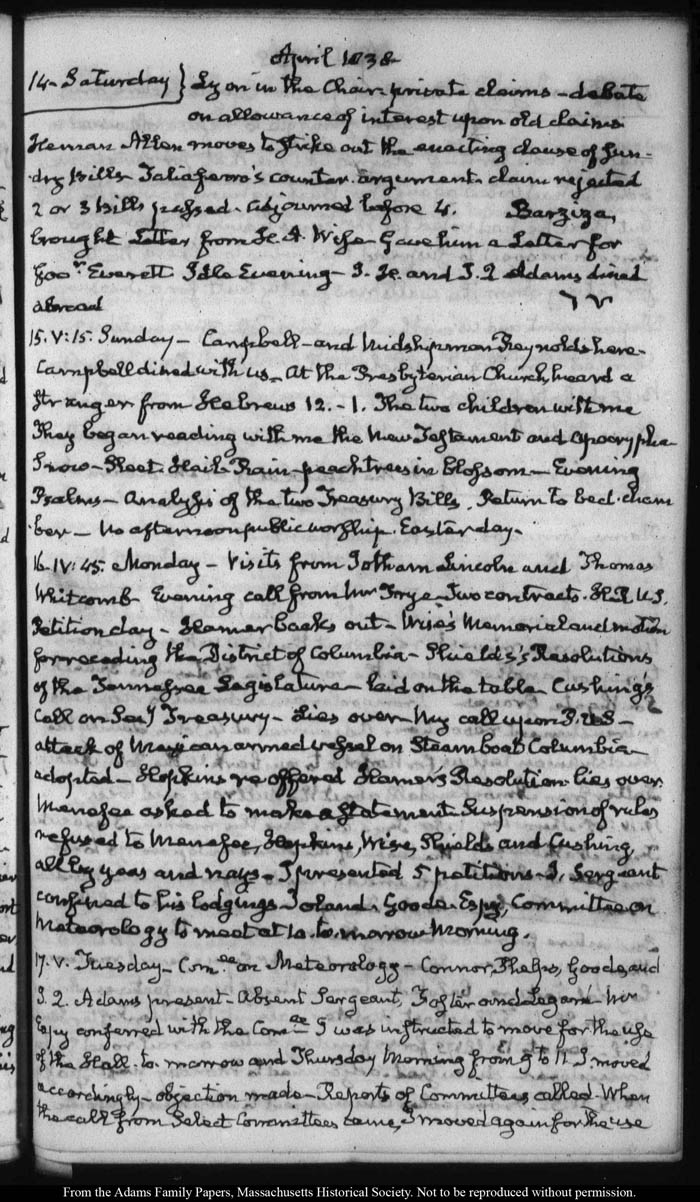 April 1838
14. Saturday } Lyon in the Chair. private claims - debate
on allowance of interest upon old claims
Heman Allen moves to strike out the enacting clause of sun-
dry bills Taliaferro's counter argument. claim rejected
2 or 3 bills passed. adjourned before 4. Barziza,
brought Letter from H. A. Wise Gave him a Letter for
Govr. Everett Idle Evening - I. H. and J. Q Adams dined
abroad
15. V:15. Sunday - Campbell - and Midshipman Reynolds here.
Campbell dined with us - At the Presbyterian Church, heard a
stranger from Hebrews 12. - 1. The two children with me
They began reading with me the New Testament and apocrypha
Snow - Sleet. Hail. Rain - peach trees in blossom - Evening
Psalms - analysis of the two Treasury Bills. Return to bed-cham
ber - No afternoon public worship. Easter day.
16. IV:45. Monday - Visits from Jotham Lincoln and Thomas
Whitcomb Evening call from Mr Frye Two contracts. H.R. U.S.
Petition day - Hamer backs out - Wise's Memorial and motion
for receding the District of Columbia - Shields's Resolutions
of the Tennessee Legislature - laid on the table Cushing's
Call on Secy Treasury - Lies over - My call upon P. U S -
attack of Mexican armed vessel on Steam boat Columbia -
adopted - Hopkins re offered Hamer's Resolution lies over
Menefee asked to make a statement. Suspension of rules
refused to Menefee, Hopkins, Wise, Shields and Cushing,
all by yeas and nays - I presented 5 petitions - J. Sergeant
confined to his lodgings Toland. Goode. Espy, Committee on
Meteorology to meet at 10. to-morrow Morning.
17. V. Tuesday - Comee. on Meteorology - Connor, Phelps, Goode, and
J. Q. Adams present - Absent Sergeant, Foster and Legaré - Mr
Espy conferred with the Comee. I was instructed to move for the use
of the Hall. to-morrow and Thursday Morning from 9 to 11. I moved
accordingly - objection made - Reports of Committees called. When
the call from Select Committees came, I moved again for the use
From the Adams Family Papers, Massachusetts Historical Society. Not to be reproduced without permission.